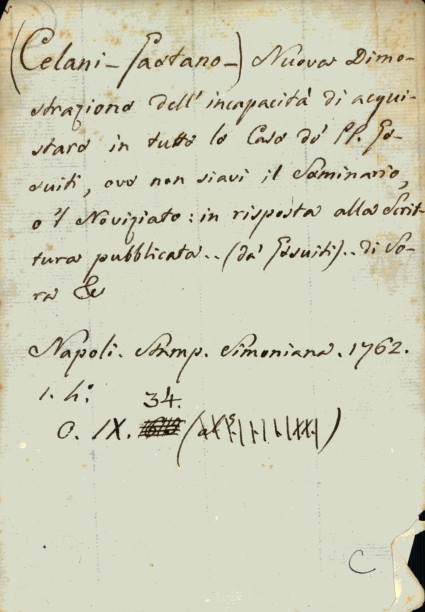 (Celani - Gaetano -) Nuova Dimo-
strazione dell' incapacità di acqui-
stare in tutte le Case de' PP. Ge-
suiti, ove non siavi il Seminario,
o 'l Noviziato: in risposta alla Scrit-
tura pubblicata .. (da' Gesuiti) .. di So-
ra &c
Napoli. Stamp. Simoniana. 1762.
1. h:
34.
O. IX.
C